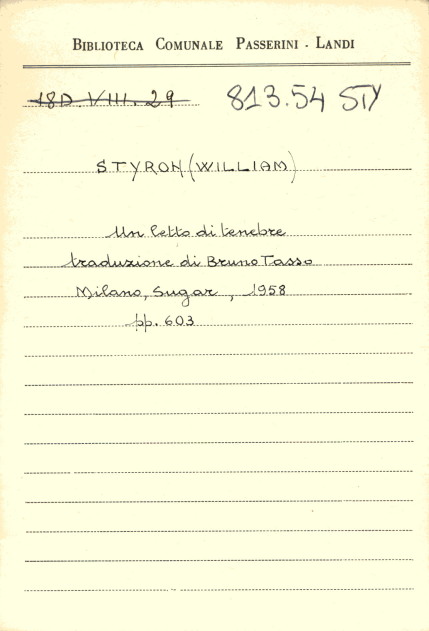 BIBLIOTECA COMUNALE PASSERINI - LANDI
18D.VIII.29 813.54 STY
STYRON (WILLIAM)
Un letto di tenebre
traduzione di Bruno Tasso
Milano, Sugar, 1958
pp. 603